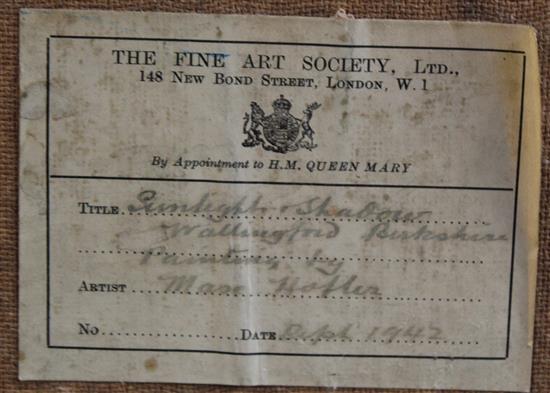 THE FINE ART SOCIETY, LTD.,
148 NEW BOND STREET, LONDON, W. 1
By Appointment to H.M. QUEEN MARY
TITLE Sunlight & Shadow
Wallingford Berkshire
Painting by
ARTIST Max Hofler
No. DATE Sept 1942